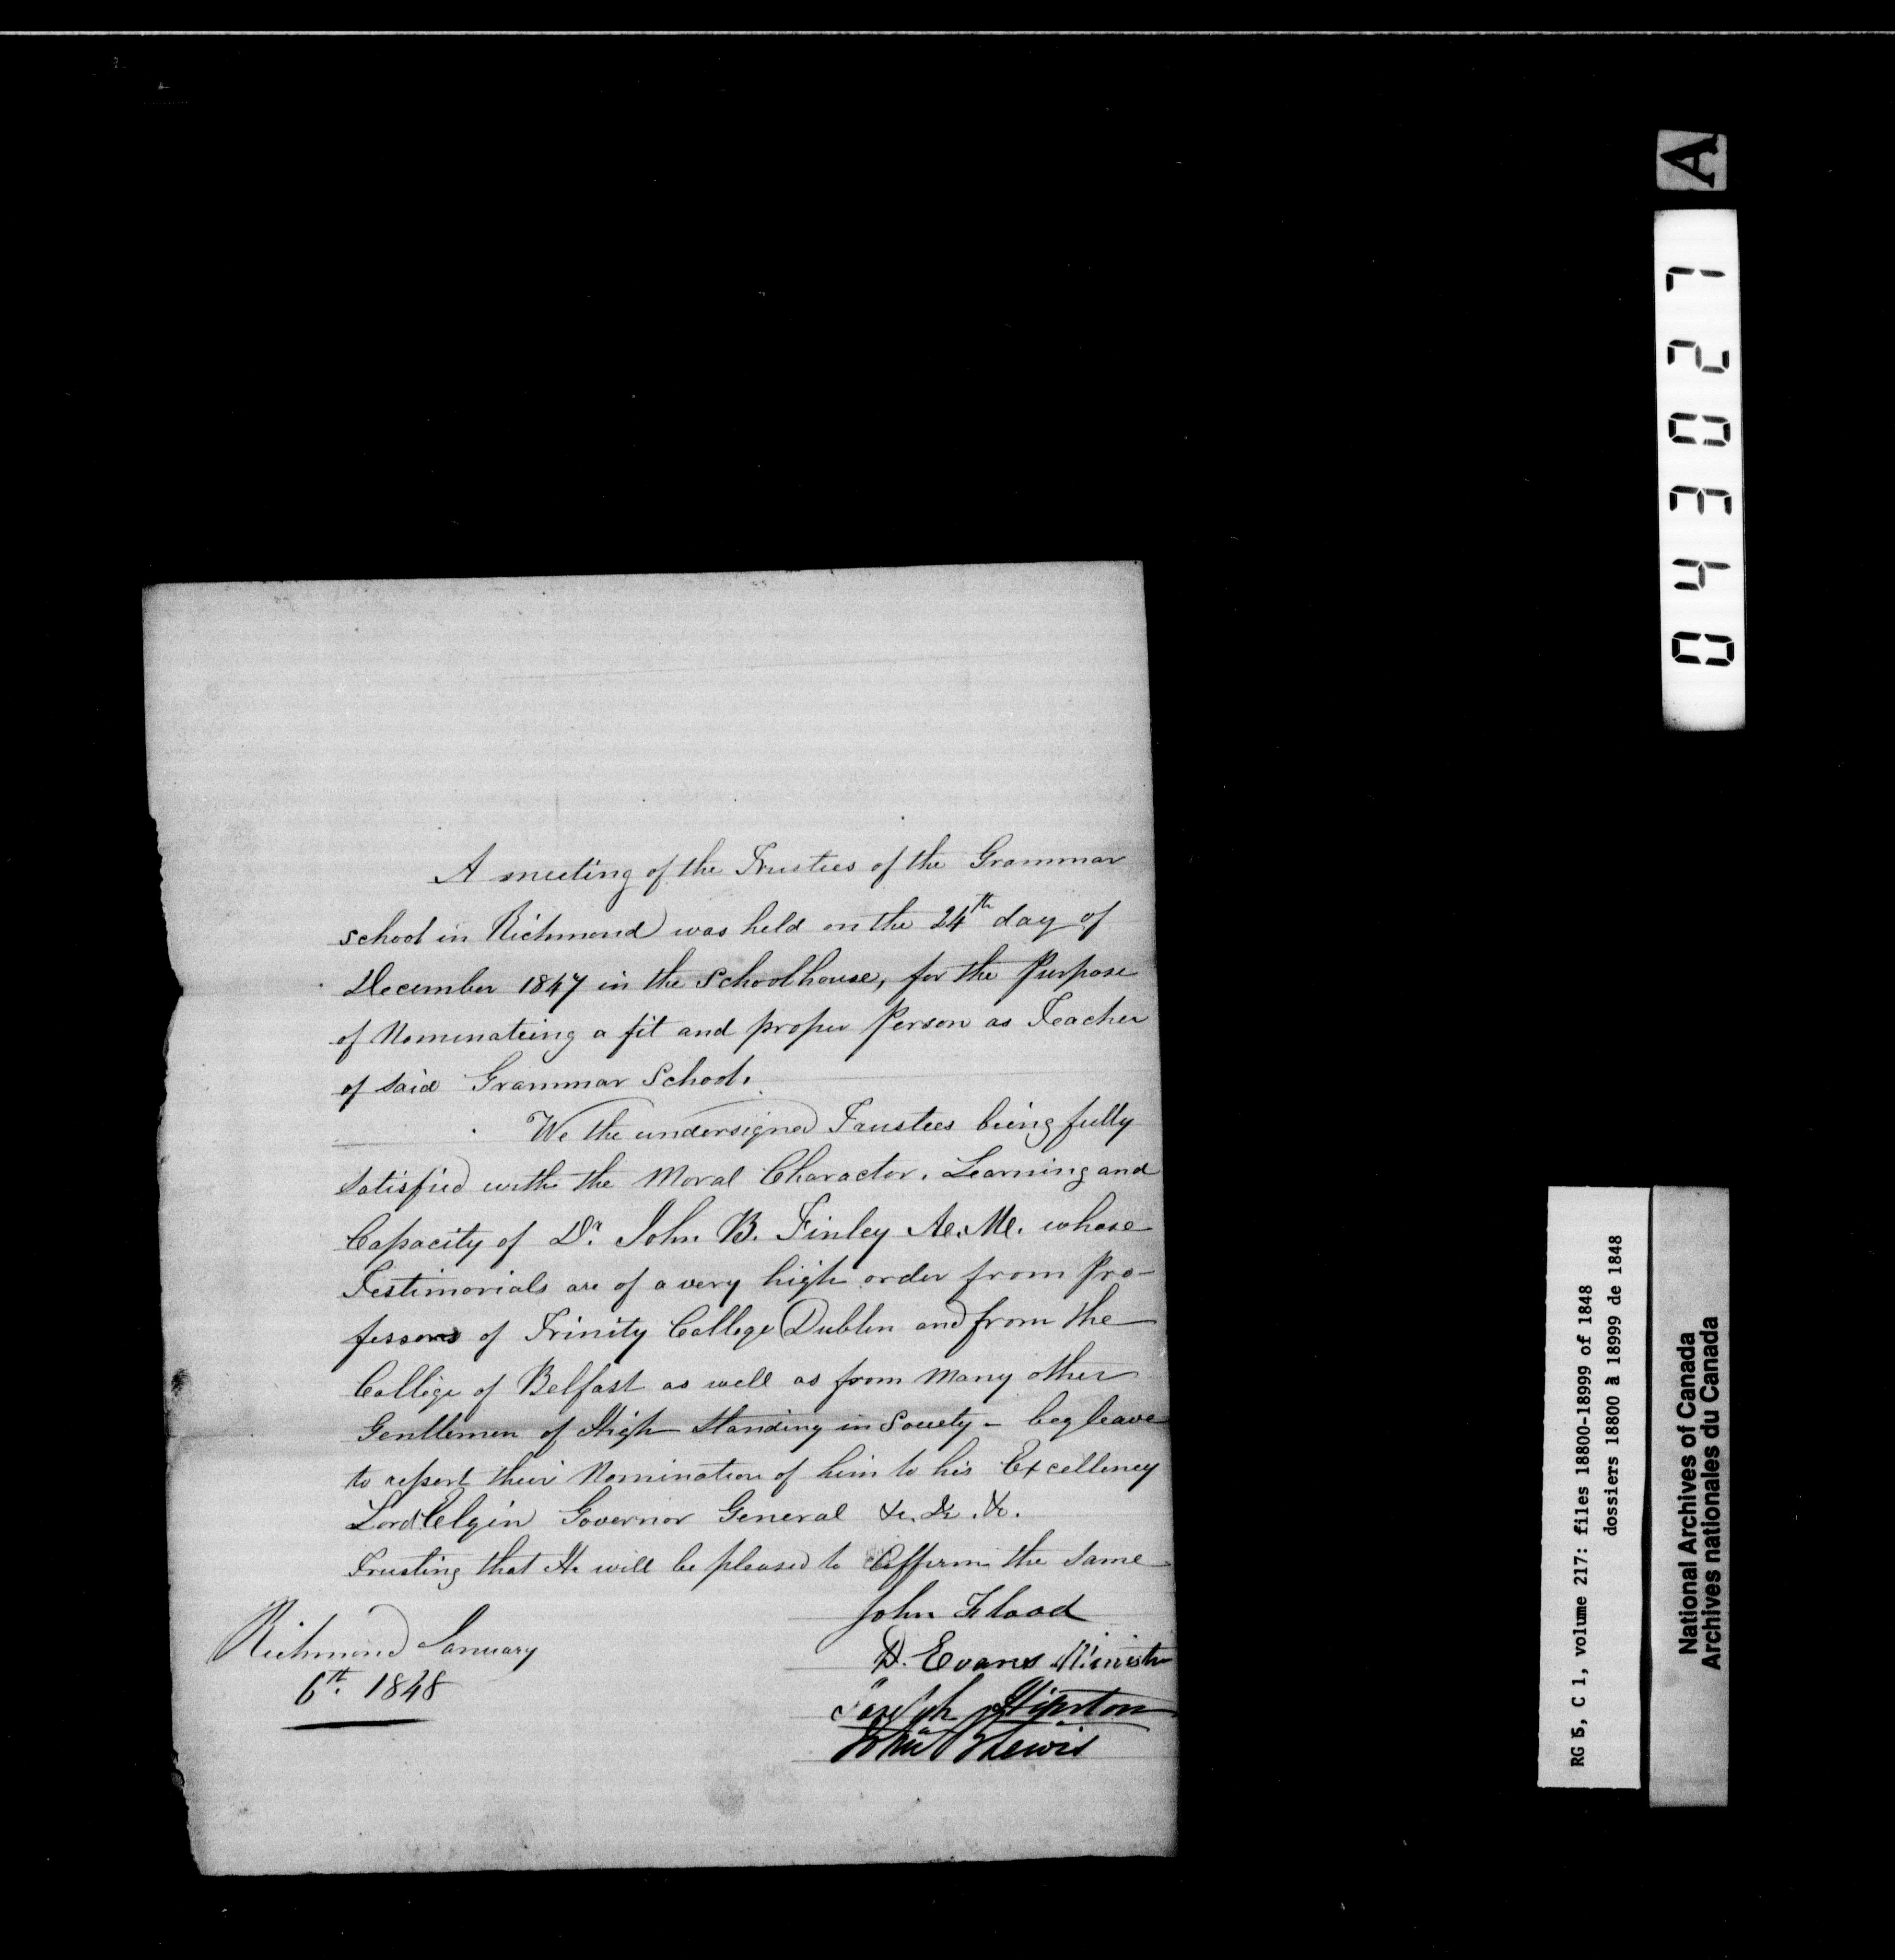 A meeting of the Trustees of the Grammar
school in Richmond was held on the 24th day of
December 1847 in the Schoolhouse, for the Purpose
of Nominateing a fit and proper Person as Teacher
of said Grammar School.
We the undersigned Trustees being fully
satisfied with the Moral Charactor, Learning and
Capacity of Dr. John B. Finley A.M. whose
Testimonials are of a very high order from Pro-
fessors of Trinity College Dublin and from the
College of Belfast as well as from Many other
Gentlemen of High Standing in Society - beg leave
to report their Nomination of him to his Excellency
Lord Elgin Governor General &c. &c. &c.
Trusting that He will be pleased to Affirm the same
John Flood
D. Evans Minister
Joseph Hinton
John Lewis
Richmond January
6th. 1848
A
043021
RG 5, C 1, volume 217: files 18800-18999 of 1848
dossiers 18800 à 18999 de 1848
National Archives of Canada
Archives nationales du Canada